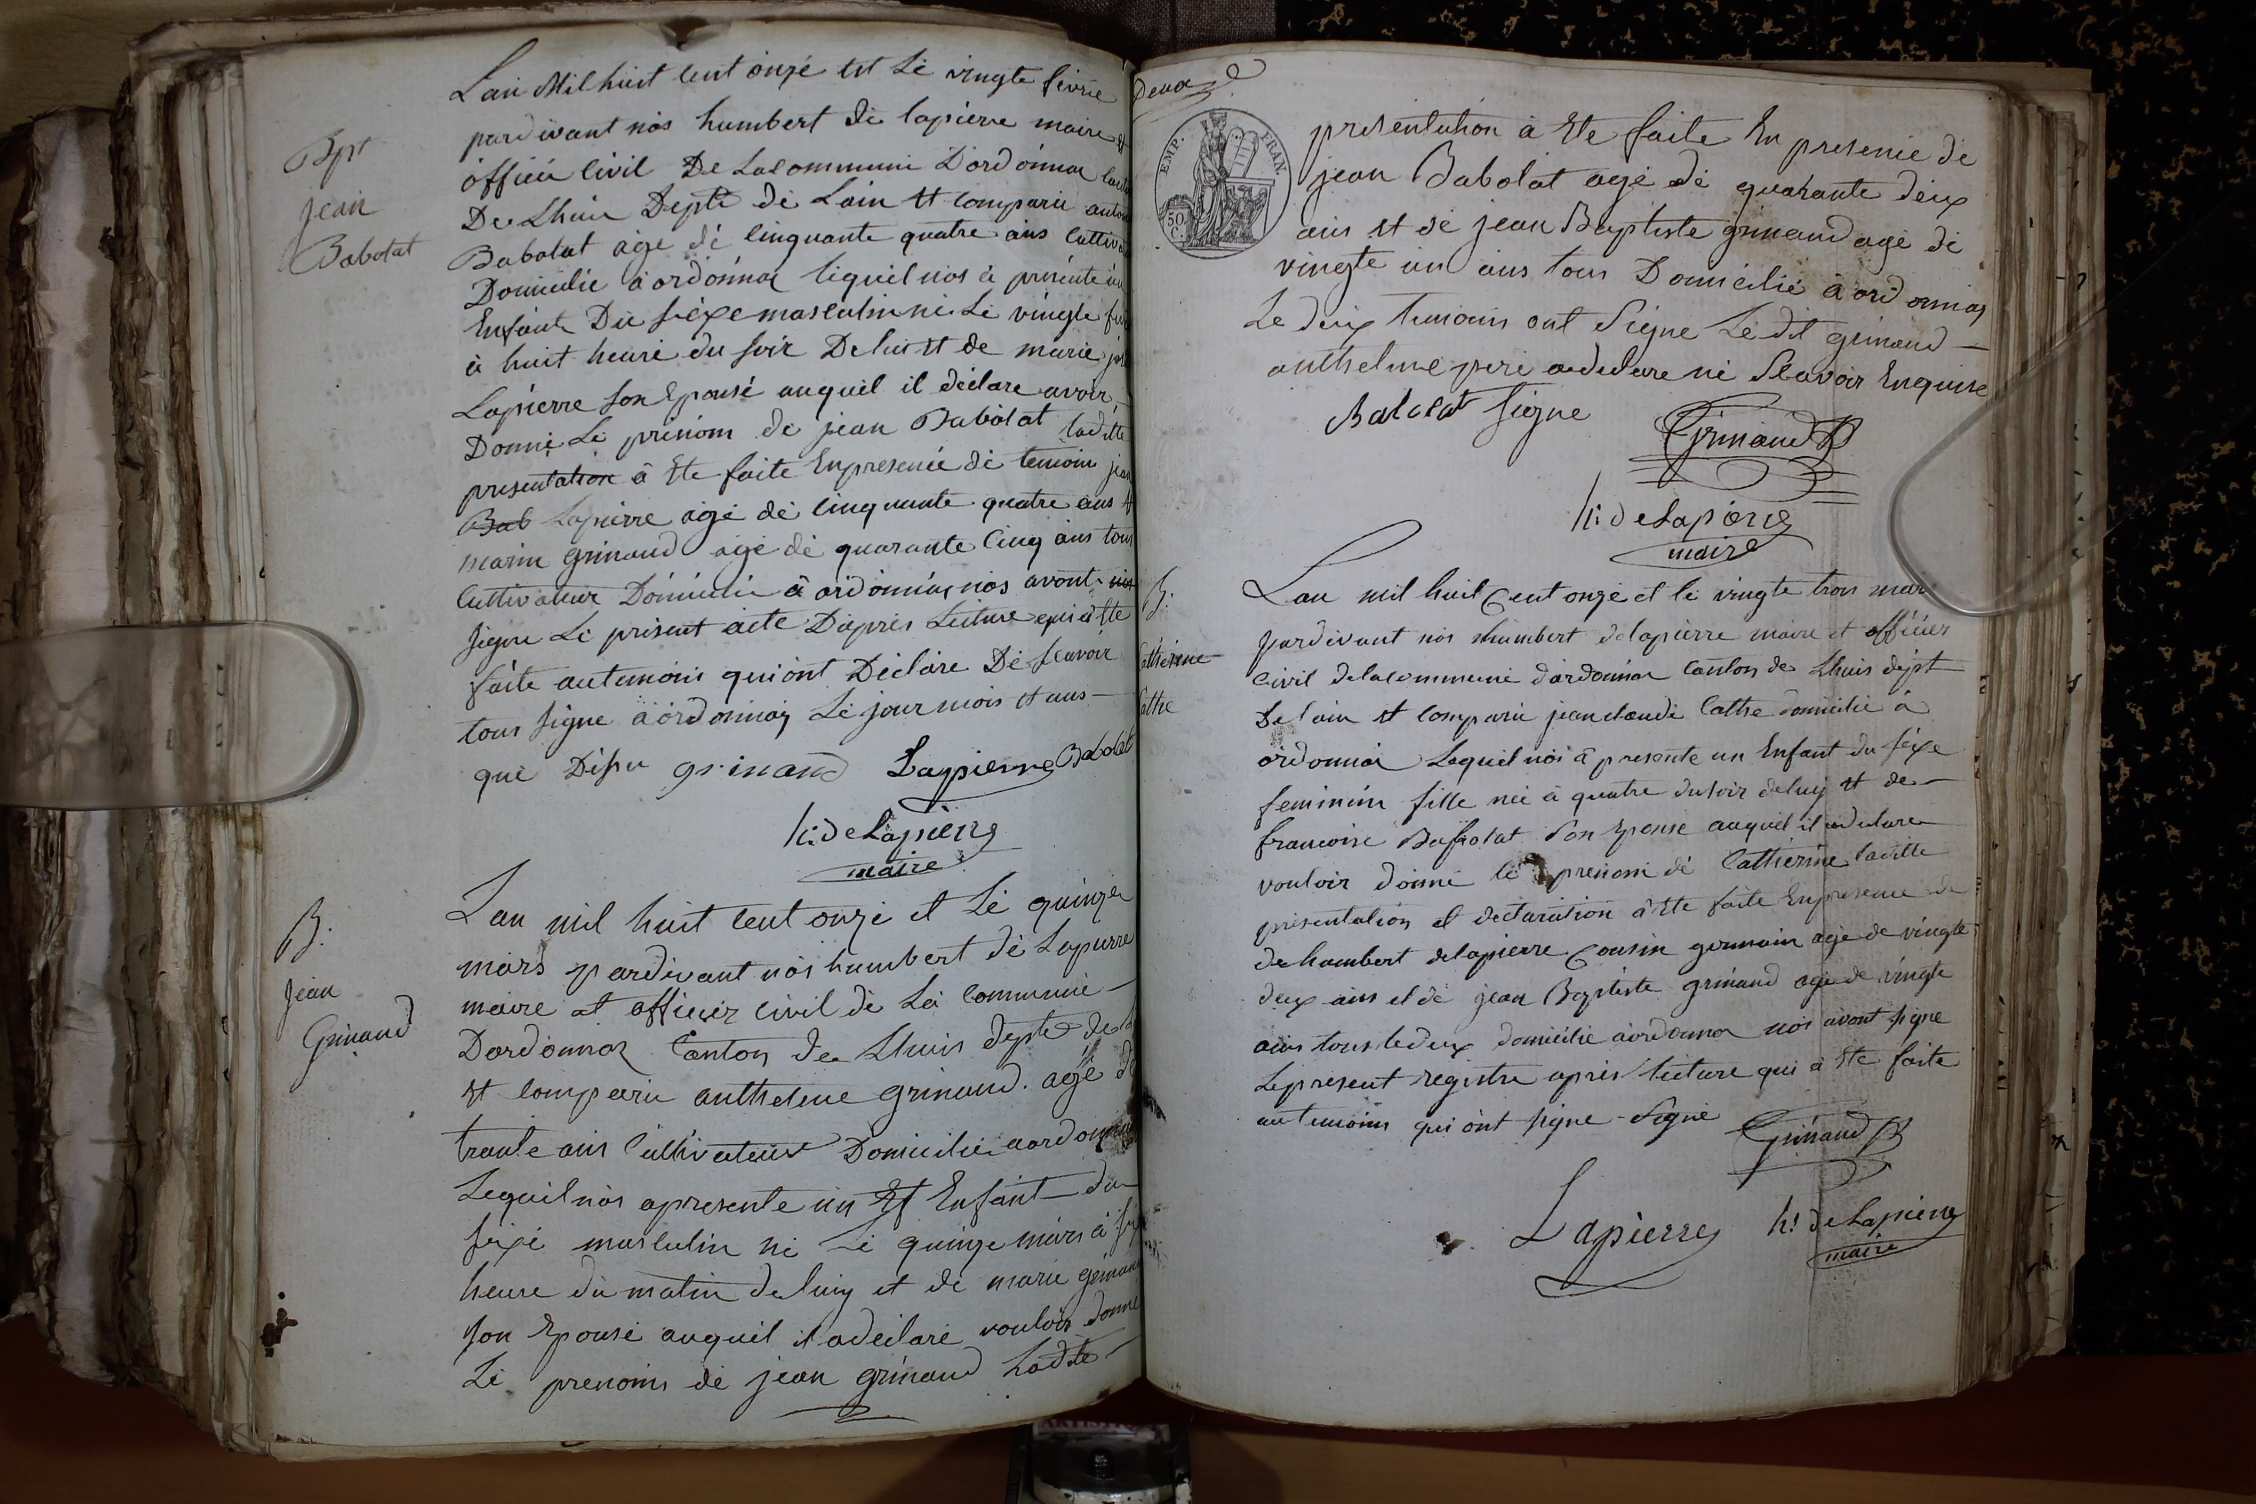 Bpt
jean
Babolat
L'an Mil huit cent onze et Le vingte févrie
pardevant nos humbert de lapierre maire et
officié Civil De La Commune D'ordonna
De Lhuis Depte de L'ain et comparu
Babolat agé dé cinquante quatre ans
Domicilié a ordonna lequel nos a présente un
Enfante Du séxe masculin né Le vingte
à huit heure du soir De lui et de marie
Lapierre son Epouse auquel il déclare avoir
Donné Le prénom de jean Babolat ladite
presentation à Ete faite En presence de temoin
Bab Lapierre agé de cinquante quatre ans
marin grinand agé de quarante Cinq ans tous
Cultivateur Domicilié a ordonnas nos avont
signe Le présent acte D'après Lecture qui a Ete
faite au temoins qui ont Déclare De scavoir
tous signe a ordonnas Le jour mois et ans
que Desu grinand Lapierre Babolat
h: de Lapierre
maire
B:
jean
Grinand
L'an mil huit cent onze et Le quinze
mars pardevant nos humbert de Lapierre
maire et officier civil de La commune
Dordonna Canton de Lhuis depte de
et comparu anthelme grinand. agé de
trante ans Cultivateur Domicilié a ordonna
Lequel nos a presente un Enfant du
sexe masculin né Le quinze mars à
heure du matin de luy et de marie grinand
son Epouse auquel il a declaré vouloir donne
Le prenoms de jean grinand Ladite
Deux
EMP. FRAN.
50 C.
presentation à Ete faite En presence de
jean Babolat age de quarante deux
ans et de jean Baptiste grinand age de
vingte un ans tous Domicilié a ordonnas
Le deux temoins ont signe Le dit grinand
anthelme pere a declare ne Scavoir Enquise
Babolat signe Grinand
h: de Lapierre
maire
B:
Catherine
Cattre
L'an mil huit Cent onze et le vingte trois mars
pardevant nos humbert delapierre maire et officier
Civil de la commune d'ordonna Canton de Lhuis dept
De l'ain et comparu jean claude Cattre domicilié à
ordonna Lequel nos à presente un Enfant du séxe
feminin fille née à quatre du soir de luy et de
francoise Babolat son Epouse auquel il a declare
vouloir donné le prenom de Catherine ladite
présentation et declaration à Ete faite En presence de
de humbert delapierre Cousin germain age de vingte
deux ans et de jean Baptiste grinand age de vingte
ans tous le deux domicilié a ordonna nos avont signe
Le present registre après lecture qui à Ete faite
au temoins qui ont signe - Signé Grinand
Lapierre h: de Lapierre
maire